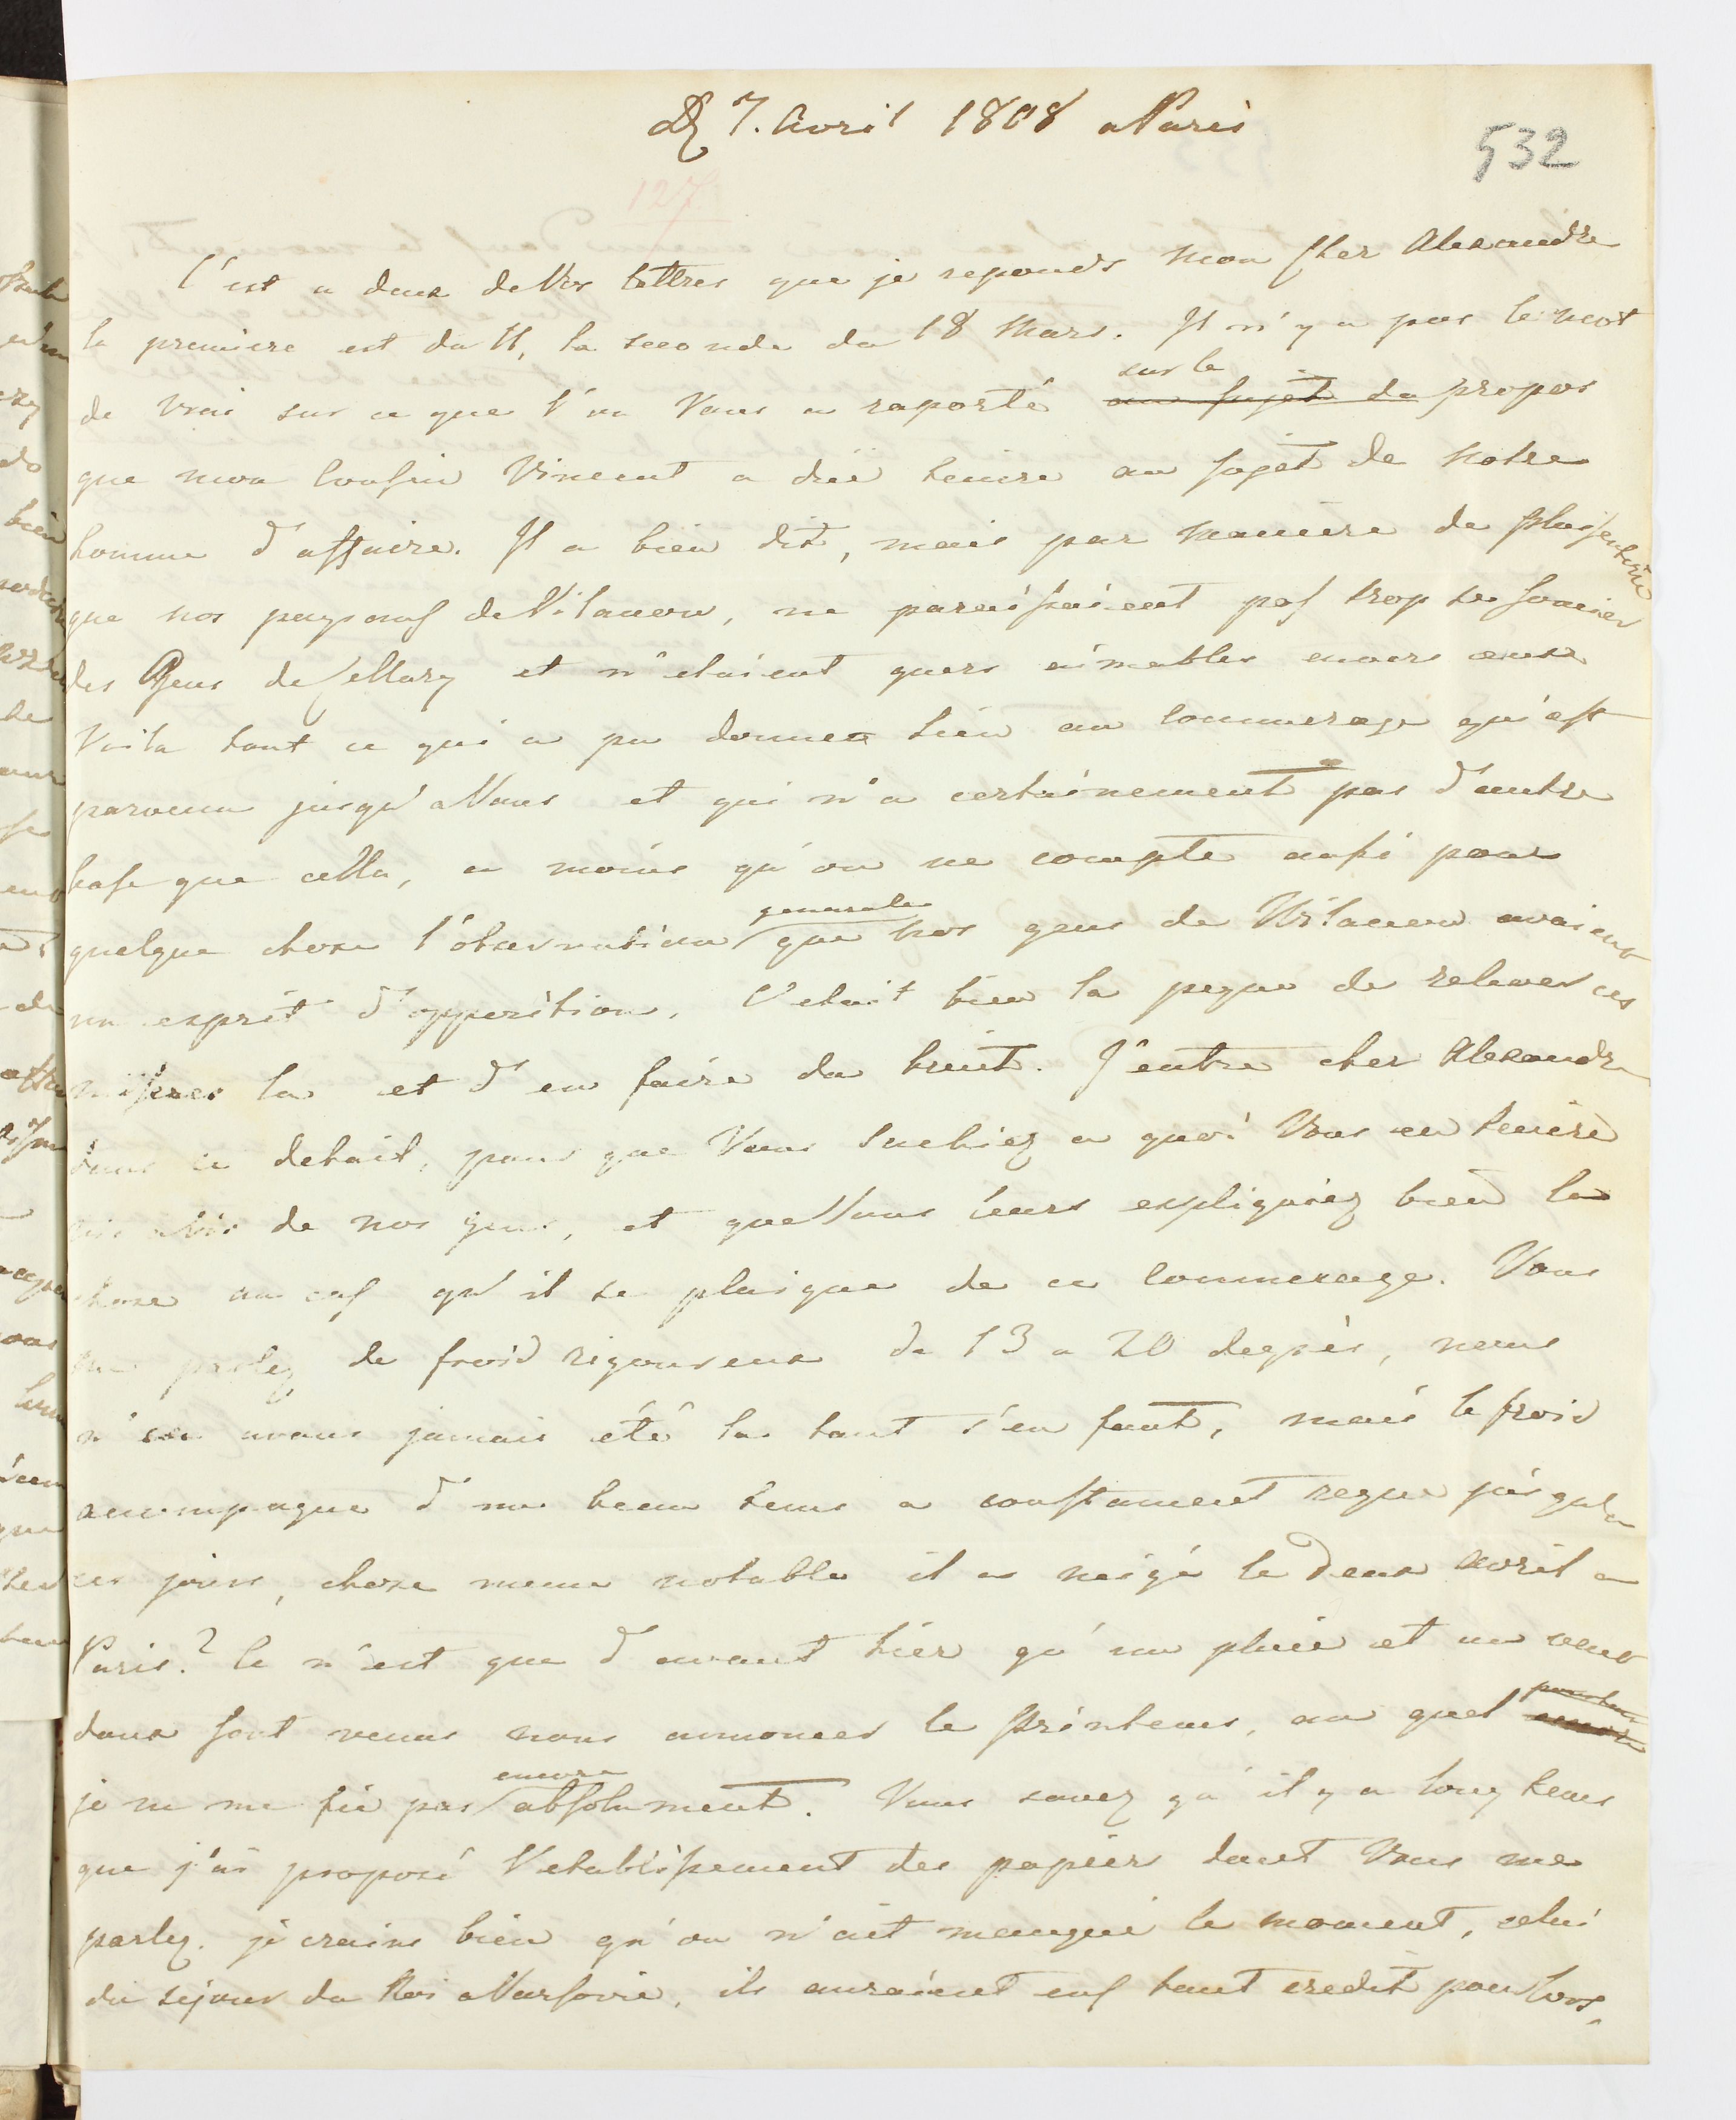 D 7. Avril 1808 a Paris
532
127
C'est a deux de Vos lettres que je reponds mon Cher Alexandre
la premiere est du 11, la seconde du 18 Mars. Il n'y a pas le mot
de vrai sur ce que l'on Vous a raporté au sujet du sur le propos
que mon Cousin Vincent a dû tenire au sujet de Notre
homme d'affaire. Il a bien dit, mais par maniere de plaisenterie
que nos paysans de Vilanow, ne paraissaient pas trop se soucier
des Gens de et n'etaient guere aimables envers eux
Voila tout ce qui a pu donner lieu au commerage qu'est
parvenu jusqu'a Vous et qui n'a certainement pas d'autre
base que cella, a moins qu'on ne compte aussi pour
quelque chose l'observation generale que nos gens de Vilanow avaient
un esprit d'opposition. C'etait bien la peyne de relever ces
miseres la et d'en faire du bruit. J'entre cher Alexandre
dans ce detail, pour que Vous Sachiez a quoi Vous en tenire
vis a vis de nos gens, et que Vous leurs expliquiez bien la
chose au cas qu'il se plaigne de ce commerage. Vous
me parlez de froid rigoureux de 13 a 20 degrés, nous
n'en avons jamais été la tant s'en faut, mais le froid
accompagné d'un beau tems a constament regné jusqu'a
ces jours, chose meme notable il a neigé le deux Avril a
Paris? Ce n'est que d'avant hier qu'un pluie et un vent
doux sont venus nous annoncer le printems, au quel
je ne me fie pas encore absolument. Vous savez qu'il y a long tems
que j'ai proposé l'etablissement des papiers dont Vous me
parlez. je crains bien qu'on n'ait manqué le moment, celui
du sejour du Roi a Varsovie, ils auraient eus tout credit pour lors,